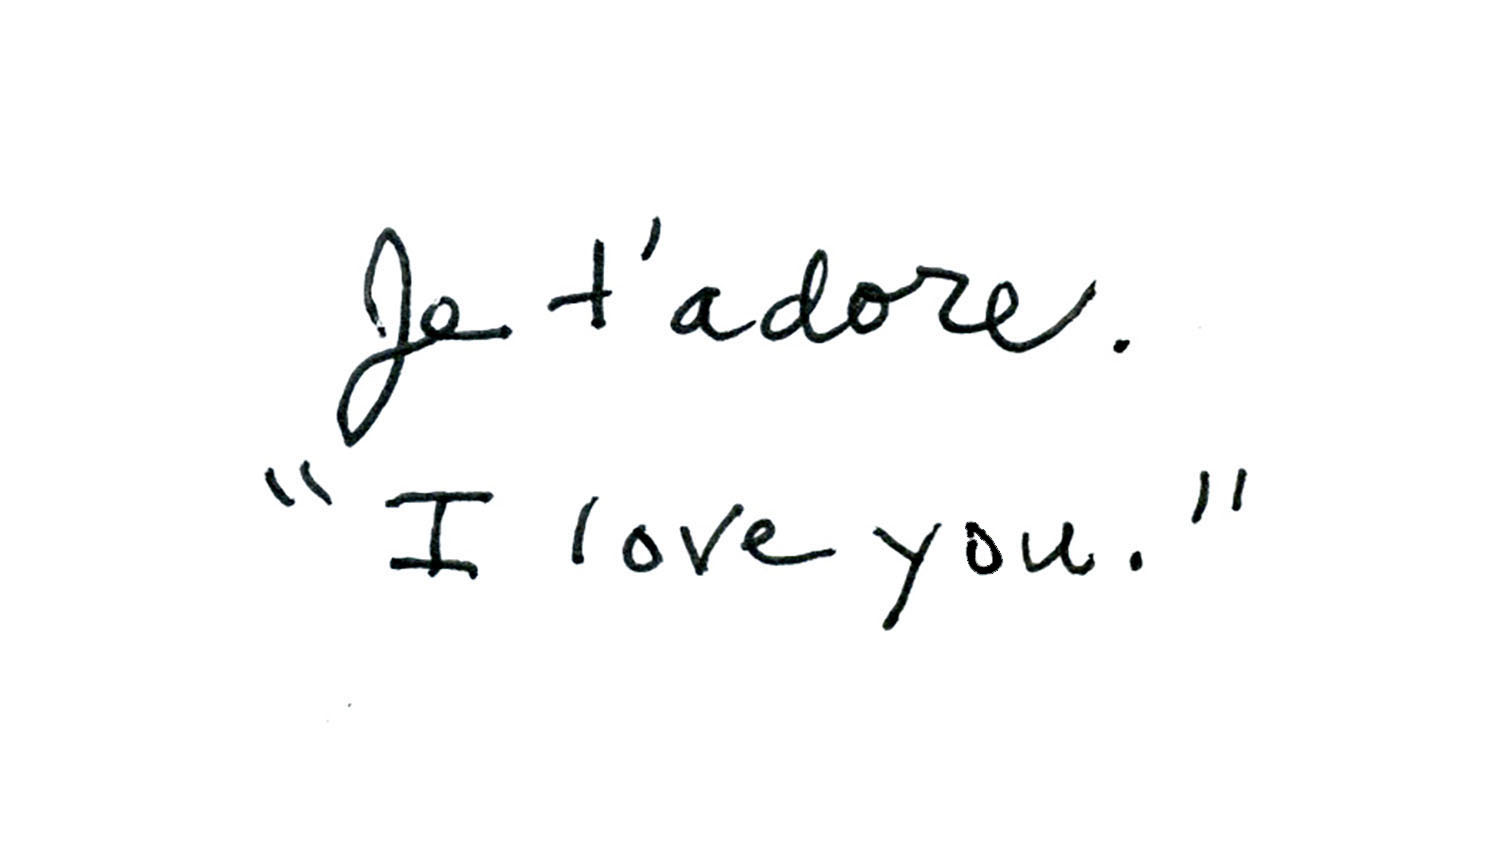 Je t'adore.
"I love you."